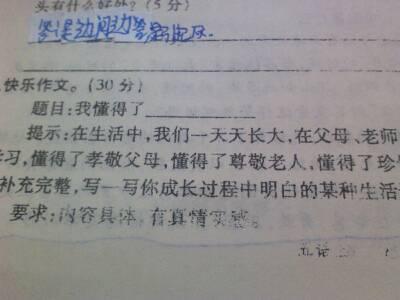 头有什么好处?(5分)
快乐作文。(30分)
题目:我懂得了
提示:在生活中,我们一天天长大,在父母、老师
学习,懂得了孝敬父母,懂得了尊敬老人,懂得了珍
补充完整,写一写你成长过程中明白的某种生活
要求:内容具体,有真情实感。